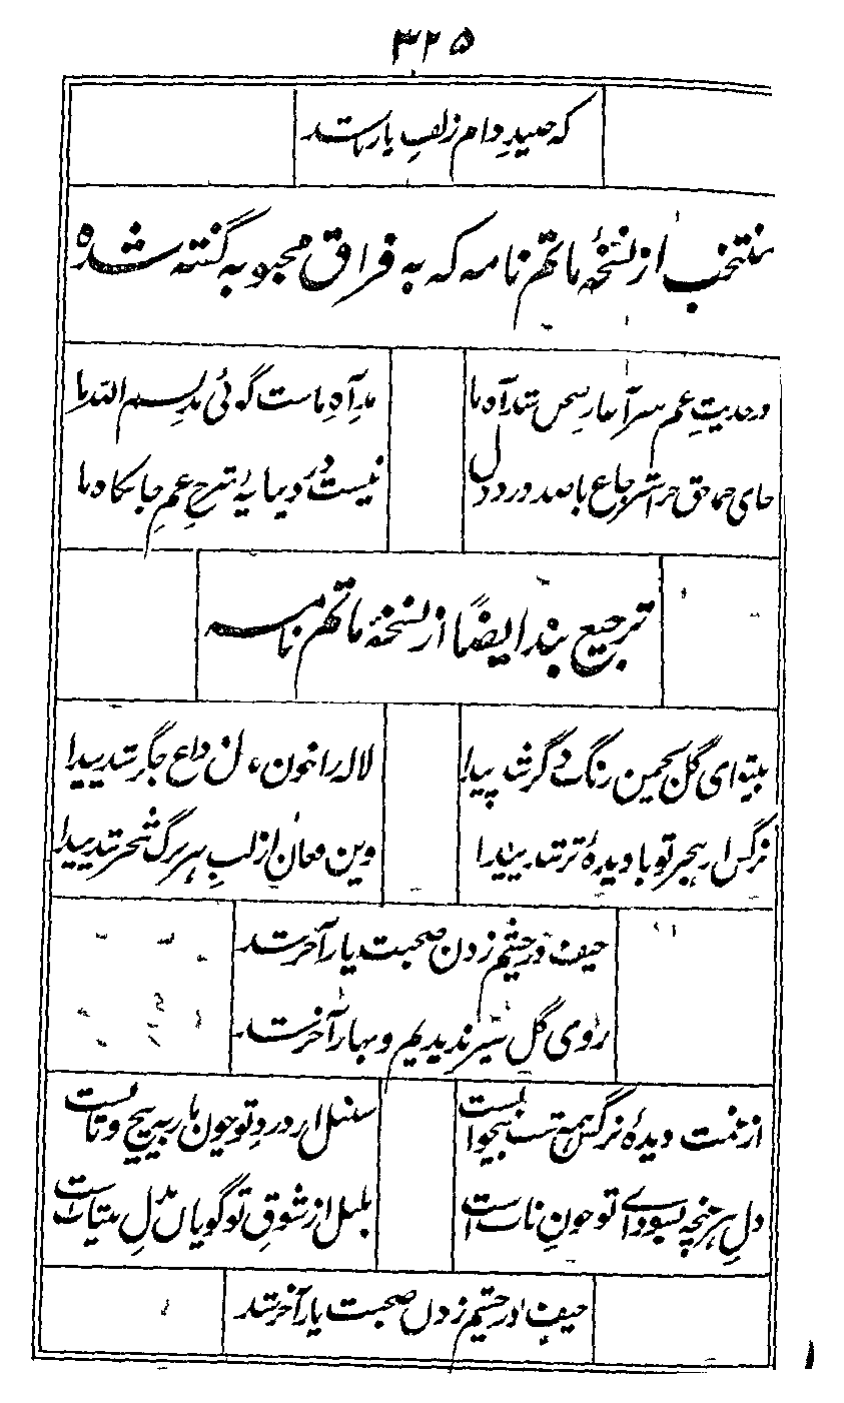 ۳۲۵
که صید دام زلف یار باشد
منتخب از نسخهٔ ماتم نامه که به فراق محبوبه گفته شده
در حدیث غم سرآغاز سخن شد آه ما
مد آه ماست گوئی مد بسم الله ما
جای حق حق با صد درد دل
نیست در دیبایهٔ شرح غم جانکاه ما
ترجیع بند ایضاً از نسخهٔ ماتم نامه
بیتو ای گل بچمن رنگ دگر شد پیدا
لاله را خون دل داغ جگر شد پیدا
نرگس از هجر تو با دیدهٔ تر شد پیدا
وین فغان از لب هر برگ شجر شد پیدا
حیف در چشم زدن صحبت یار آخر شد
روی گل سیر ندیدیم و بهار آخر شد
از غمت دیدهٔ نرگس همه شب بیخوابست
سنبل از درد تو چون مار به پیچ و تابست
دل هر غنچه بسودای تو خون نابست
بلبل از شوق تو گویا بدل بیتابست
حیف در چشم زدن صحبت یار آخر شد